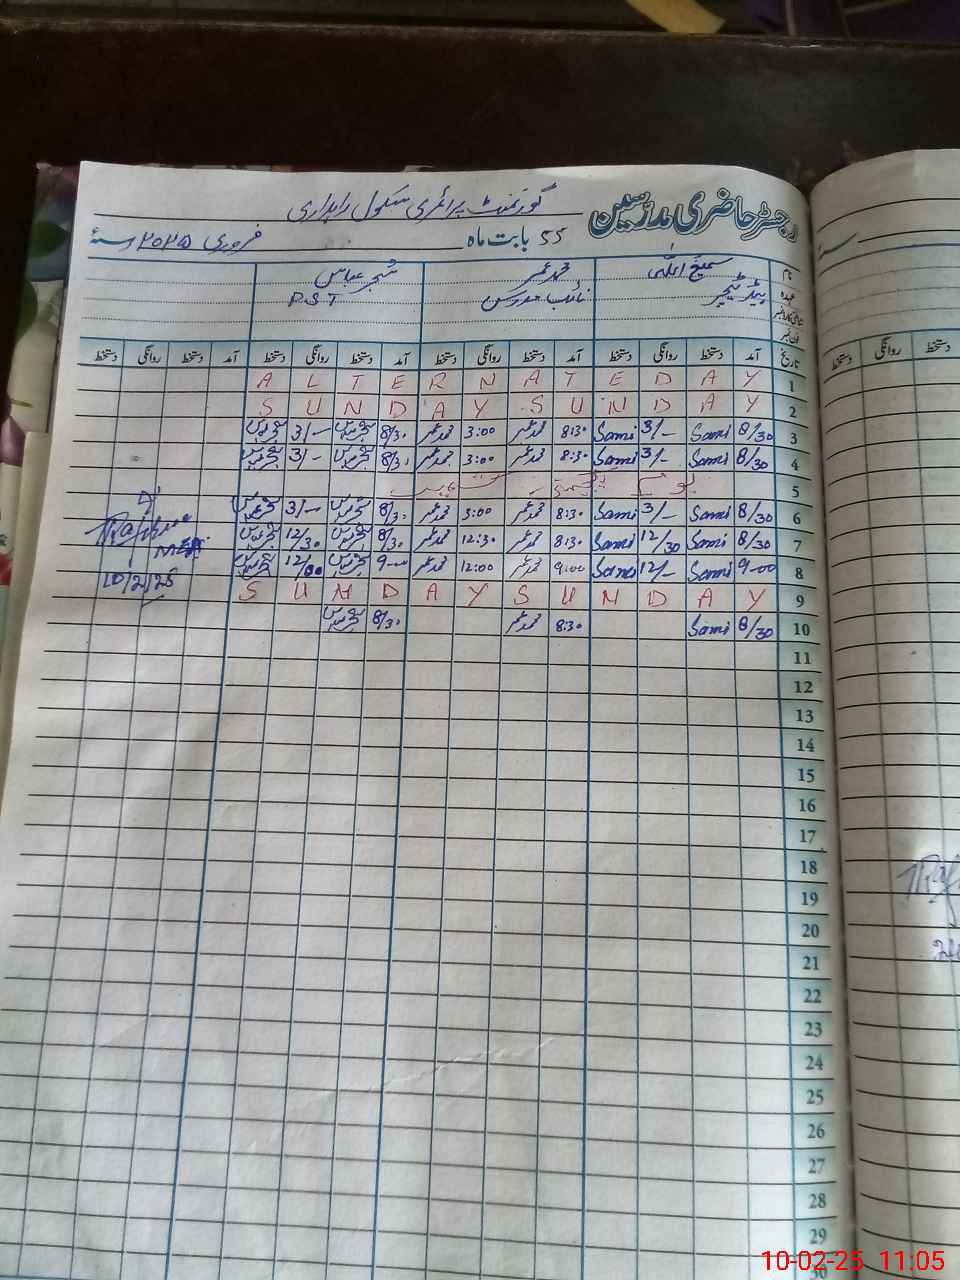 رجسٹر حاضری مدرسین گورنمنٹ پرائمری سکول راہداری
55 بابت ماہ فروری ۲۰۲۵ سنہ
نام سمیع اللہ محمد عمر شجر عباس
عہدہ ہیڈ ٹیچر نائب مدرس P.S.T
تاریخ آمد دستخط روانگی دستخط آمد دستخط روانگی دستخط آمد دستخط روانگی دستخط آمد دستخط روانگی دستخط
A L T E R N A T E D A Y 1
S U N D A Y S U N D A Y 2
3/- 8/30 محمد عمر 3:00 محمد عمر 8:30 Sami 3/- Sami 8/30 3
3/- 8/30 محمد عمر 3:00 محمد عمر 8:30 Sami 3/- Sami 8/30 4
5 یوم یکجہتی
3/- 8/30 محمد عمر 3:00 محمد عمر 8:30 Sami 3/- Sami 8/30 6
12/30 8/30 محمد عمر 12:30 محمد عمر 8:30 Sami 12/30 Sami 8/30 7
12/00 9-00 محمد عمر 12:00 محمد عمر 9:00 Sami 12/- Sami 9-00 8
S U N D A Y S U N D A Y 9
8/30 محمد عمر 8:30 Sami 8/30 10
10/2/25
11
12
13
14
15
16
17
18
19
20
21
22
23
24
25
26
27
28
29
30
دستخط روانگی دستخط
10-02-25 11:05